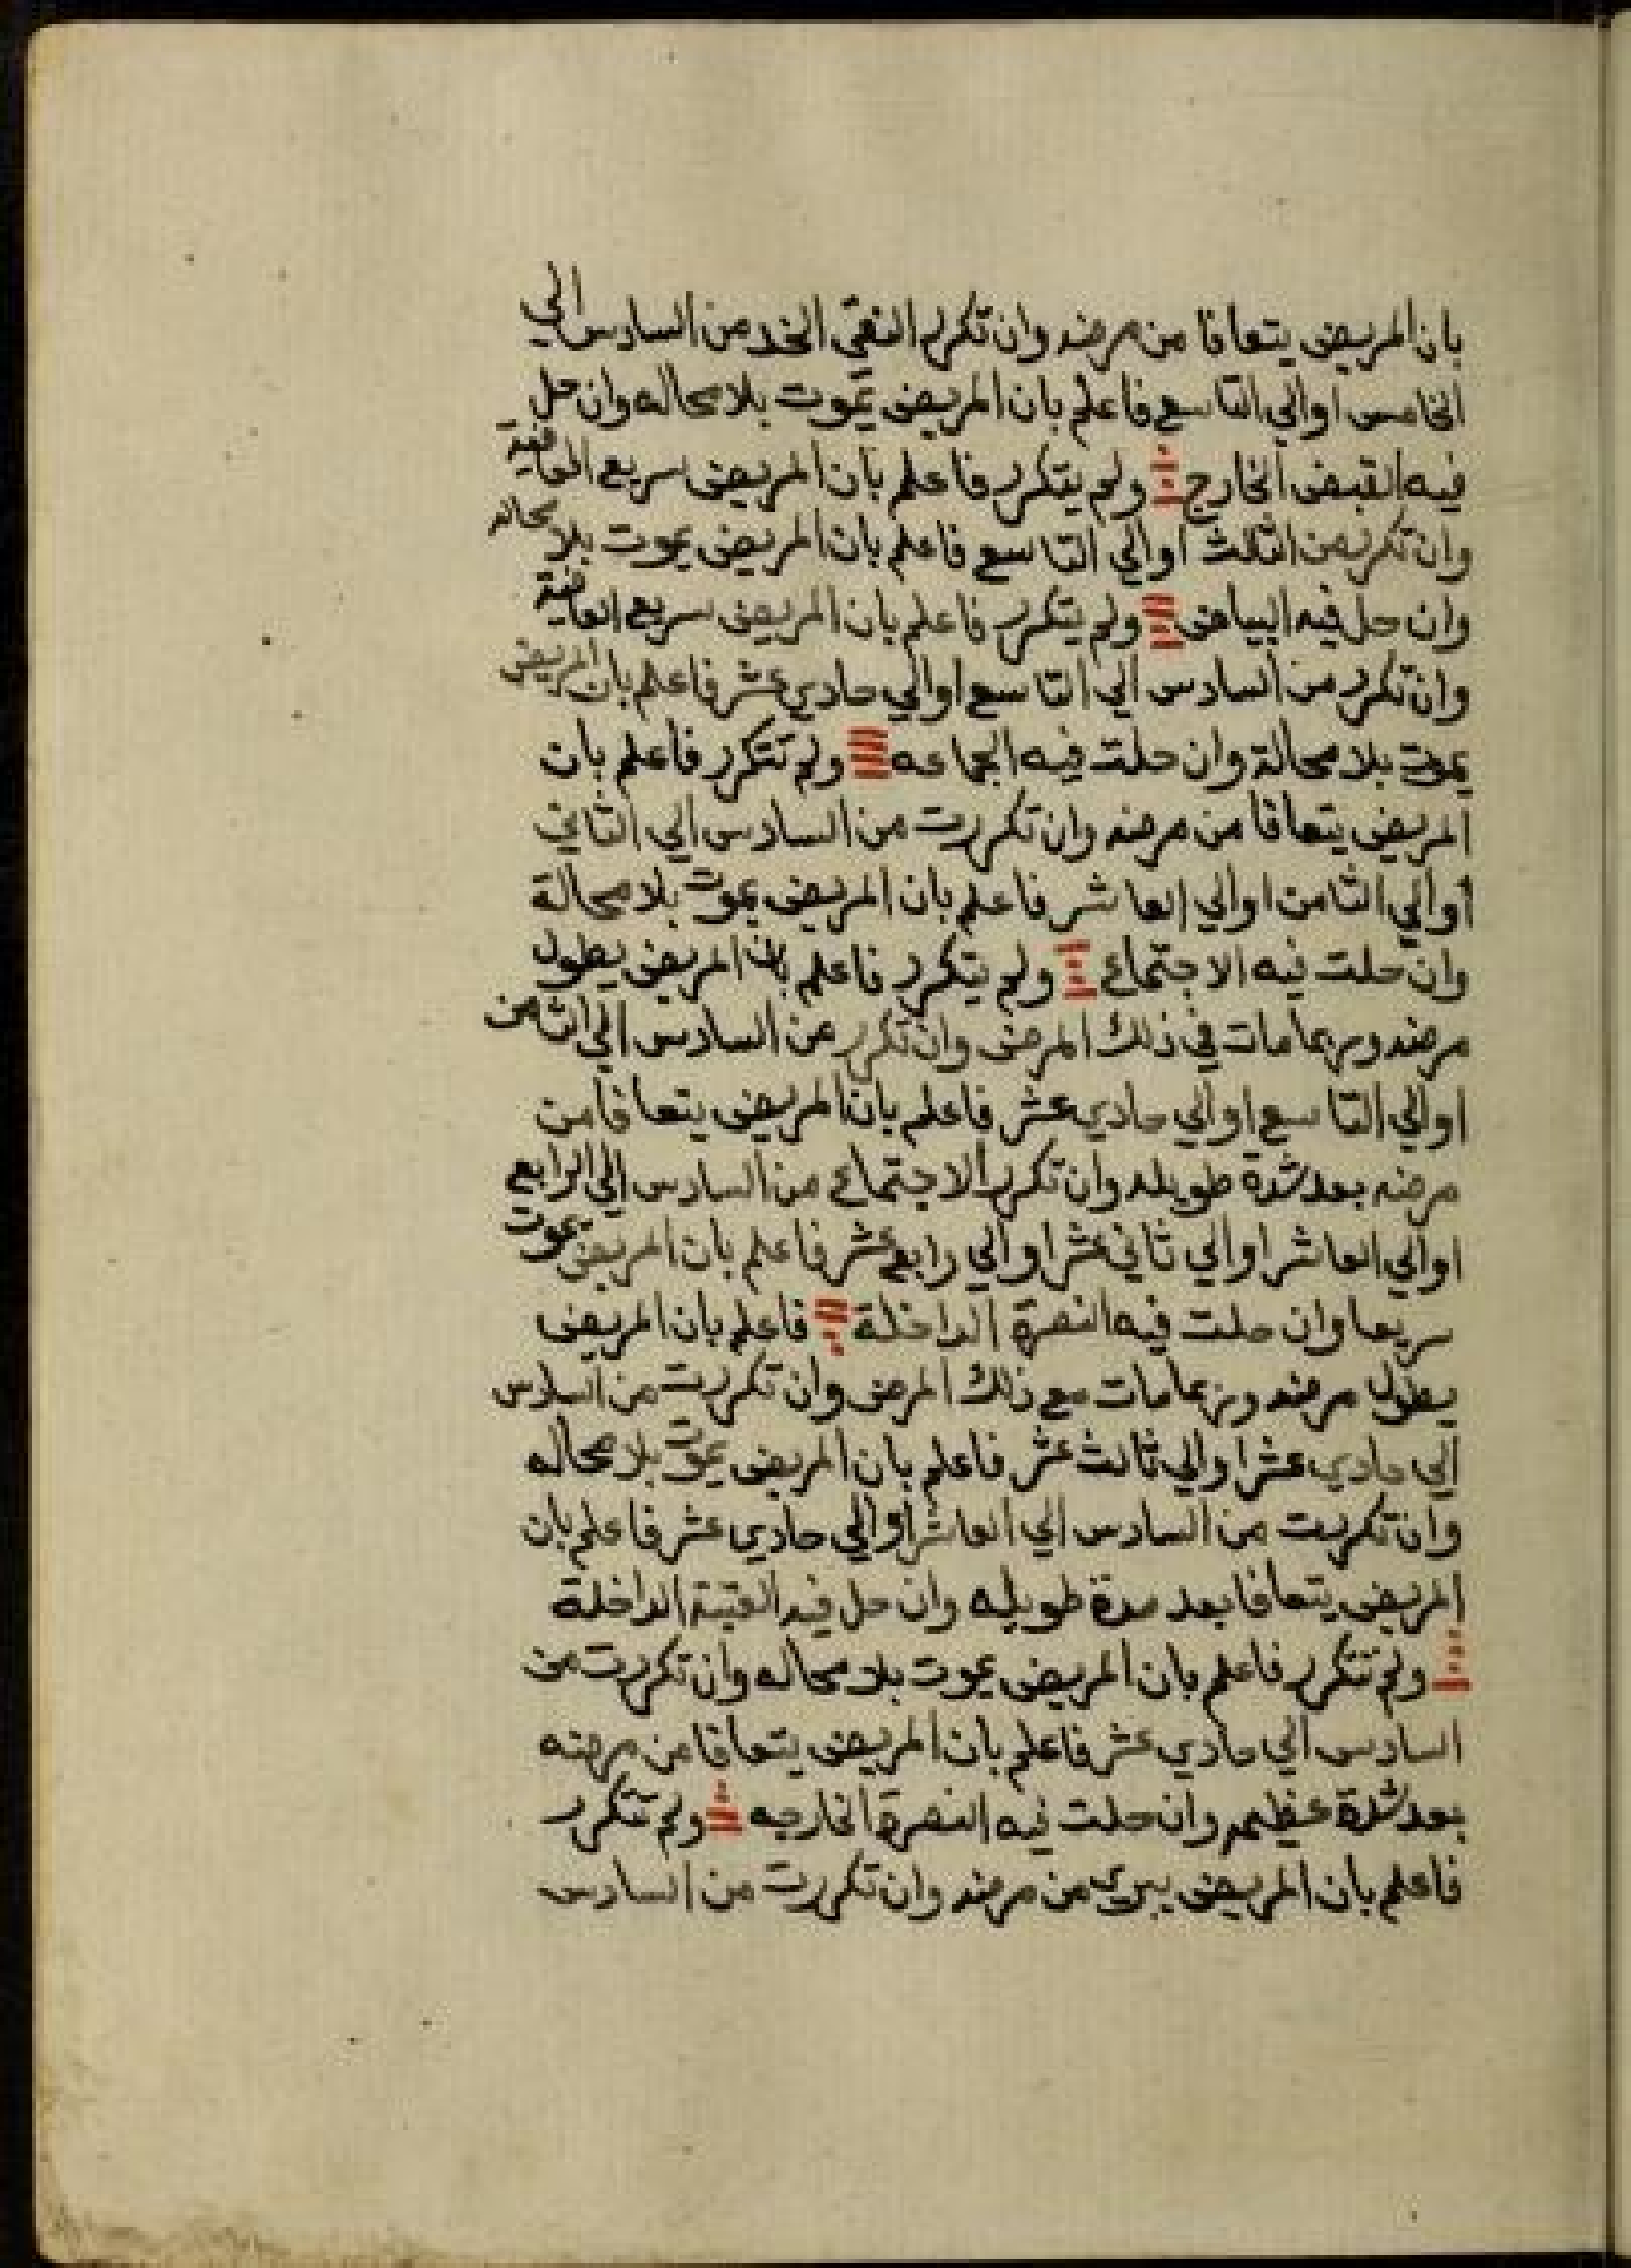 بان المريض يتعافا من مرضه وان تكرر النقي الخد من السادس الي
الخامس اوالي التاسع فاعلم بان المريض يموت بلا محاله وان حل
فيه القبض الخارج ولم يتكرر فاعلم بان المريض سريع العافية
وان تكرر من الثالث اوالي التاسع فاعلم بان المريض يموت بلا محاله
وان حل فيه البياض ولم يتكرر فاعلم بان المريض سريع العافية
وان تكرر من السادس الي التاسع اوالي حادي عشر فاعلم بان المريض
يموت بلا محالة وان حلت فيه الجماعه ولم تتكرر فاعلم بان
المريض يتعافا من مرضه وان تكررت من السادس الي الثاني
اوالي الثامن اوالي العاشر فاعلم بان المريض يموت بلا محالة
وان حلت فيه الاجتماع ولم يتكرر فاعلم بان المريض يطول
مرضه وربما مات في ذلك المرض وان تكرر من السادس الي الثامن
اوالي التاسع اوالي حادي عشر فاعلم بان المريض يتعافا من
مرضه بعد شدة طويله وان تكرر الاجتماع من السادس الي الرابع
اوالي العاشر اوالي ثاني عشر اوالي رابع عشر فاعلم بان المريض يموت
سريعا وان حلت فيه النصرة الداخلة فاعلم بان المريض
يطول مرضه وربما مات مع ذلك المرض وان تكررت من السادس
الي حادي عشر اوالي ثالث عشر فاعلم بان المريض يموت بلا محاله
وان تكررت من السادس الي العاشر اوالي حادي عشر فاعلم بان
المريض يتعافا بعد مدة طويله وان حل فيه العتبة الداخلة
ولم تتكرر فاعلم بان المريض يموت بلا محاله وان تكررت من
السادس الي حادي عشر فاعلم بان المريض يتعافا من مرضه
بعد شدة عظيمه وان حلت فيه النصرة الخارجه ولم تتكرر
فاعلم بان المريض يبري من مرضه وان تكررت من السادس